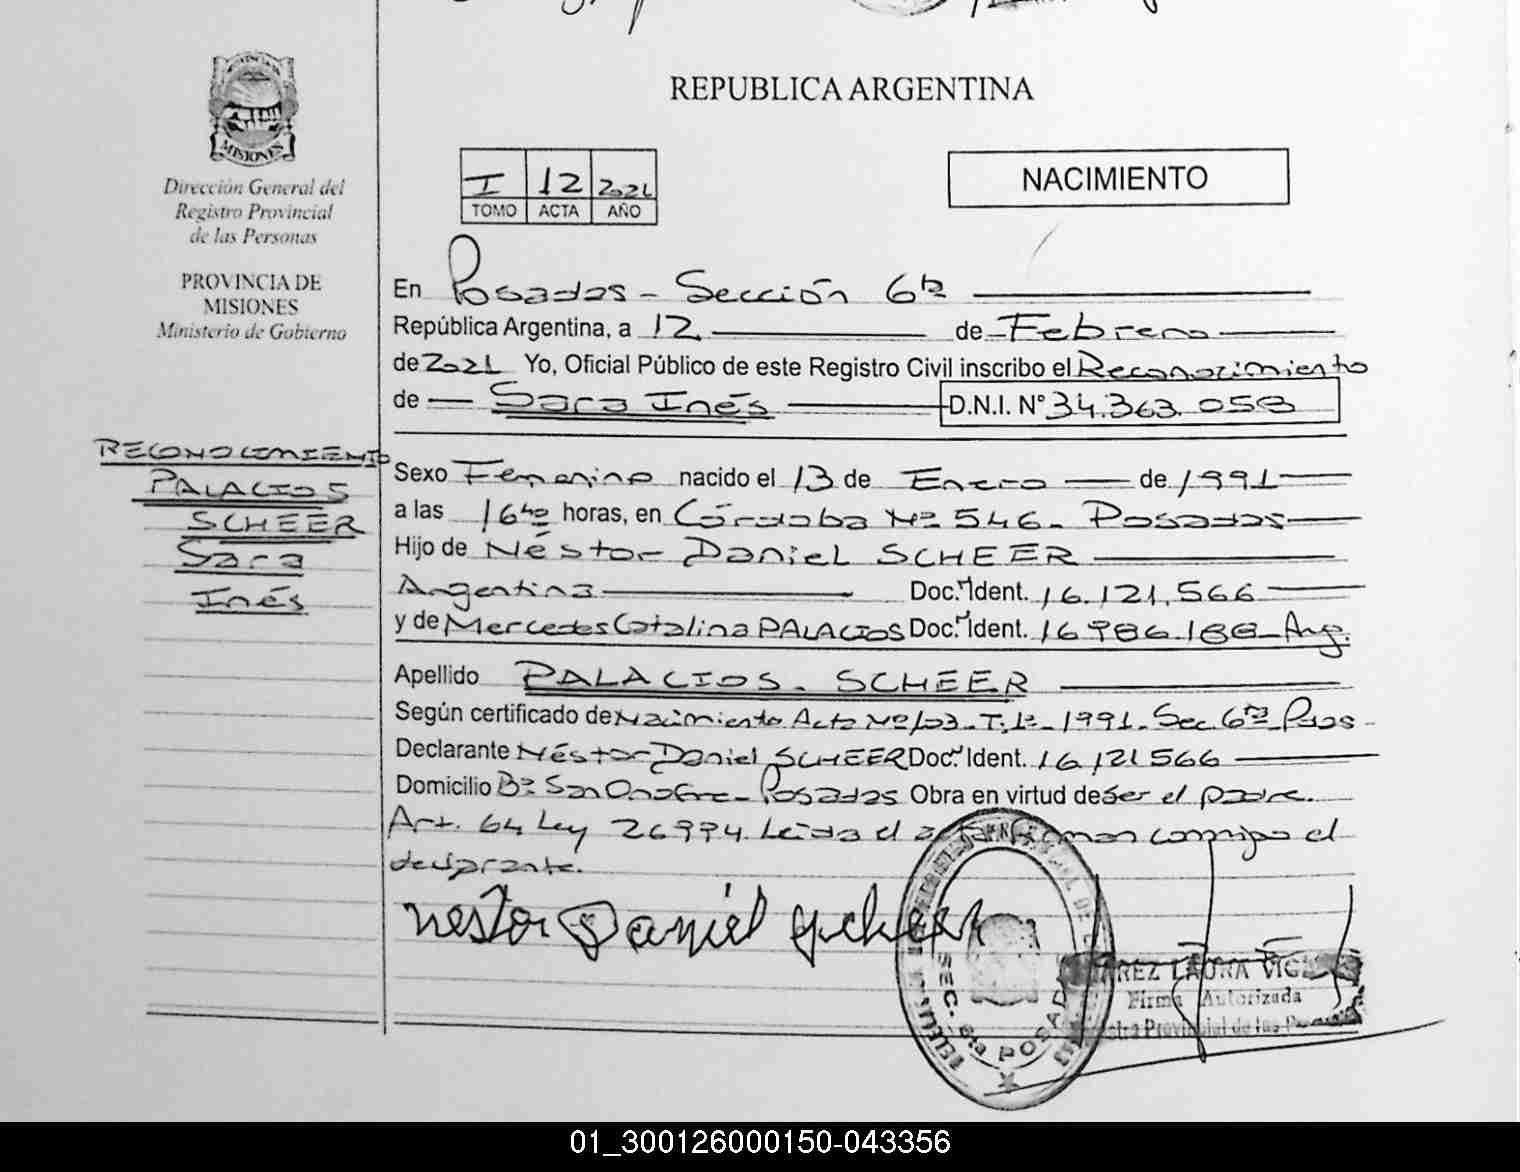 MISIONES
Dirección General del
Registro Provincial
de las Personas
PROVINCIA DE
MISIONES
Ministerio de Gobierno
RECONOCIMIENTO
PALACIOS
SCHEER
Sara
Inés
REPUBLICA ARGENTINA
I 12 2021
TOMO ACTA AÑO
NACIMIENTO
En Posadas - Sección 6ta
República Argentina, a 12 de Febrero
de 2021 Yo, Oficial Público de este Registro Civil inscribo el Reconocimiento
de Sara Inés D.N.I. Nº 34.363.058
Sexo Femenino nacido el 13 de Enero de 1991
a las 16 horas, en Córdoba Nº 546 - Posadas
Hijo de Néstor Daniel SCHEER
Argentina Doc. Ident. 16.121.566
y de Mercedes Catalina PALACIOS Doc. Ident. 16.986.188 - Arg.
Apellido PALACIOS - SCHEER
Según certificado de Nacimiento Acta Nº 103 - T. 1º - 1991 - Sec. 6ta Pdas -
Declarante Néstor Daniel SCHEER Doc. Ident. 16.121.566
Domicilio Bº San Onofre - Posadas Obra en virtud de ser el padre.
Art. 64 Ley 26994. Leída el acta Firman conmigo el
declarante.
Nestor Daniel Scheer
SEC. 6ta POSADAS
LAURA
Firma Autorizada
Provincial de las
01_300126000150-043356